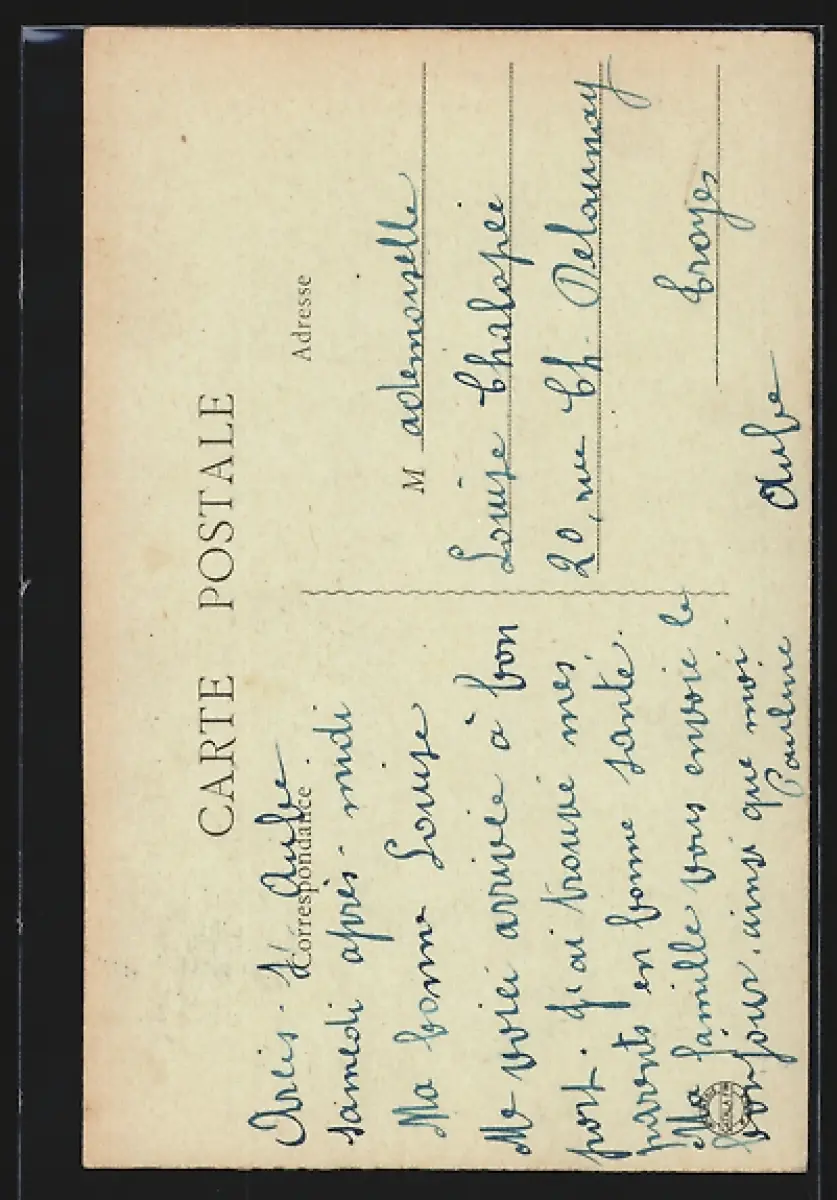 CARTE POSTALE
Correspondance
Arcis-s/-Aube
samedi après-midi
Ma bonne Louise
Me voici arrivée à bon
port. J'ai trouvé mes
parents en bonne santé.
Ma famille vous envoie le
bonjour, ainsi que moi.
Pauline
Adresse
M ademoiselle
Louise Chalopée
20, rue Ch. Delaunay
Troyes
Aube